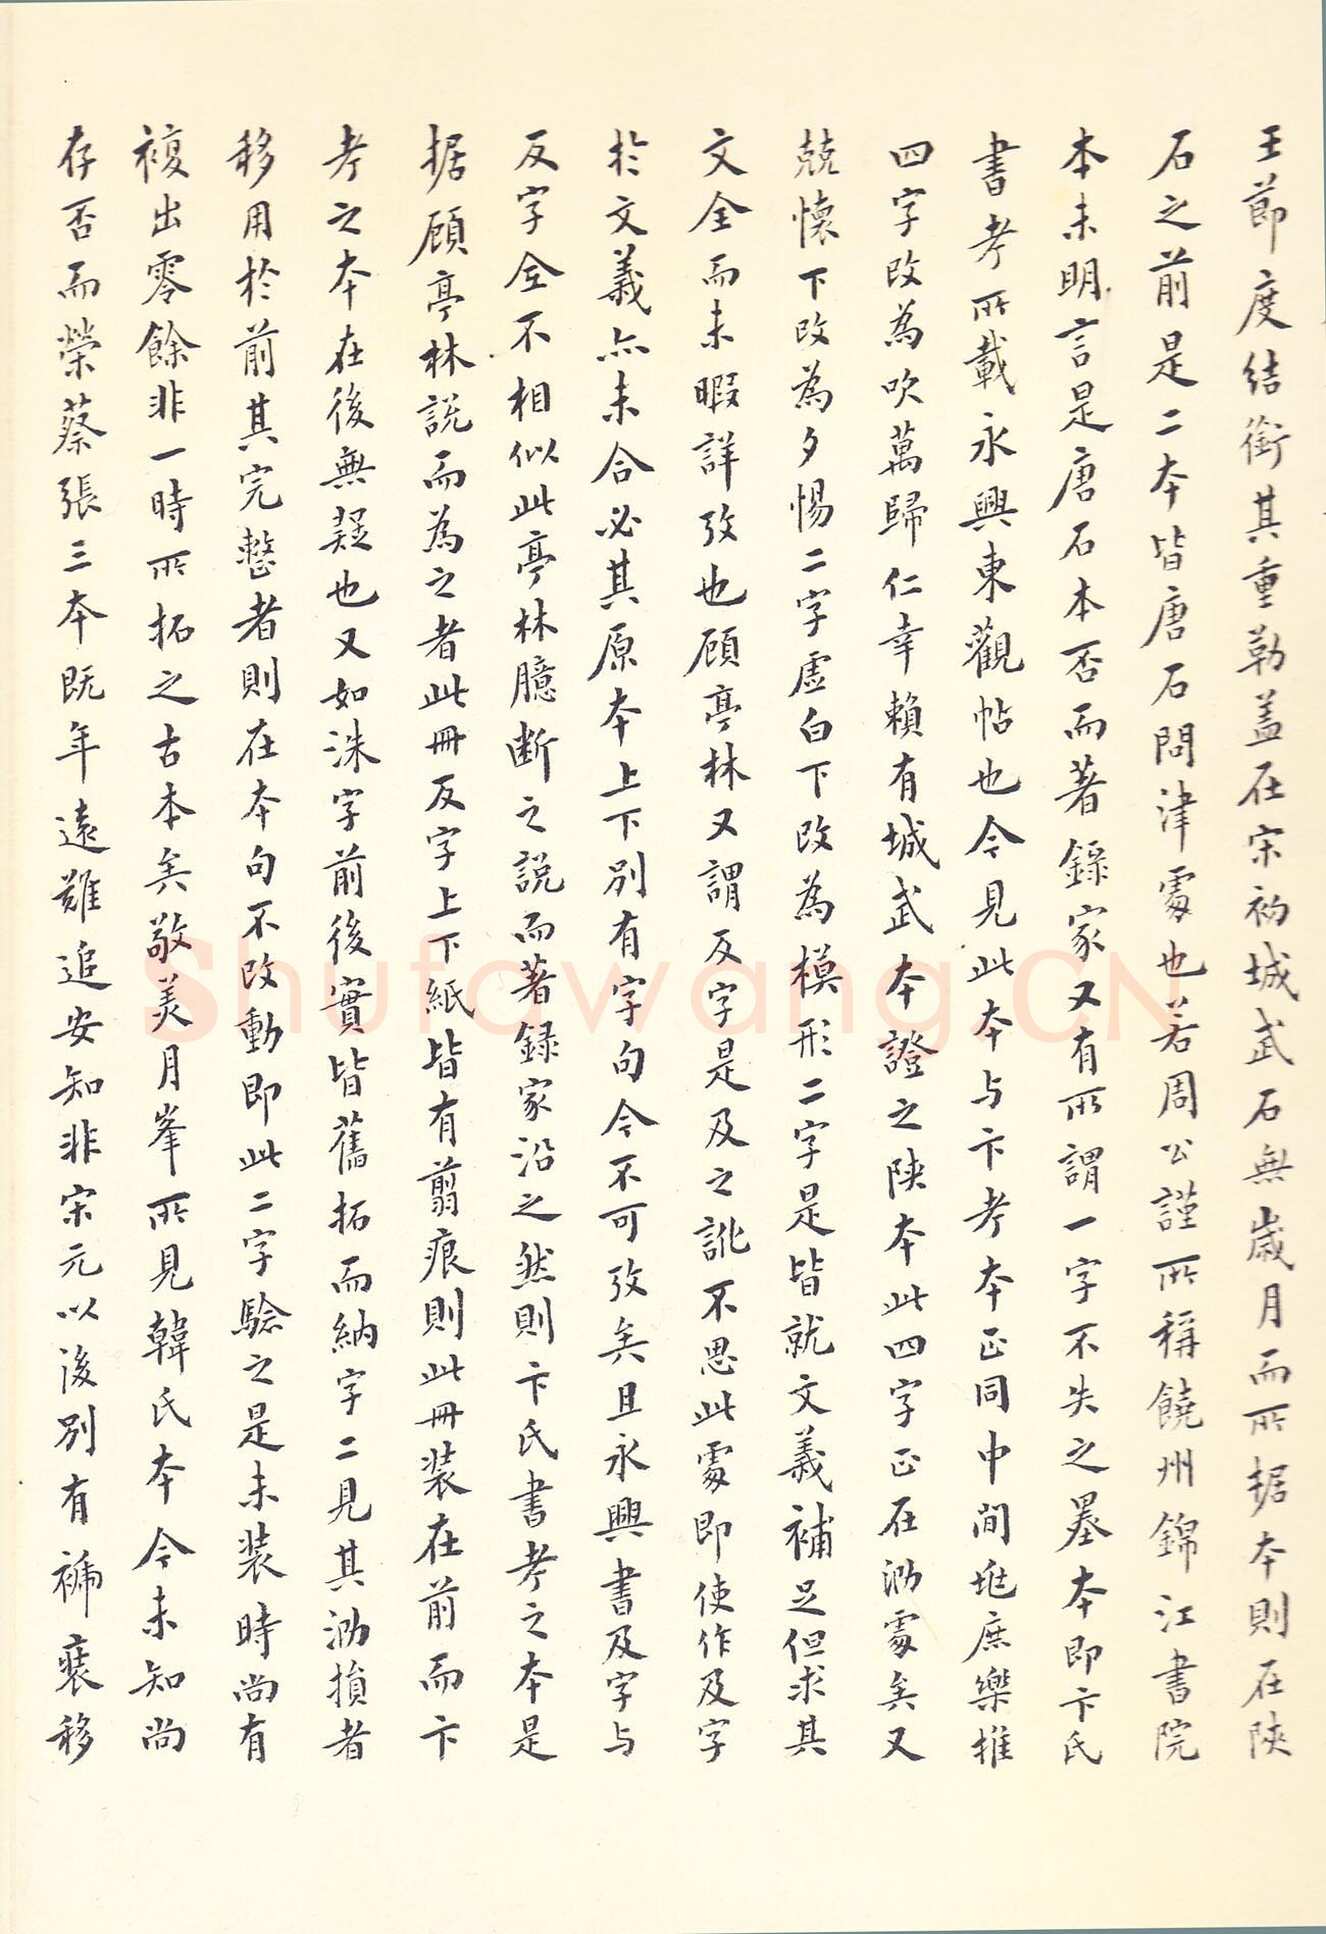 王節度結銜其重勒盖在宋初城武石無歲月而所据本則在陝
石之前是二本皆唐石問津處也若周公謹所稱饒州錦江書院
本未明言是唐石本否而著錄家又有所謂一字不失之墨本即卞氏
書考所載永興東觀帖也今見此本与卞考本正同中間庶樂推
四字改為吹萬歸仁幸賴有城武本證之陝本此四字正在泐處矣又
兢懷下改為夕惕二字虛白下改為模形二字是皆就文義補足但求其
文全而未暇詳攷也顧亭林又謂反字是及之訛不思此處即使作及字
於文義亦未合必其原本上下別有字句今不可攷矣且永興書及字与
反字全不相似此亭林臆断之説而著録家沿之然則卞氏書考之本是
据顧亭林説而為之者此冊反字上下紙皆有翦痕則此冊装在前而卞
考之本在後無疑也又如洙字前後實皆舊拓而納字二見其泐損者
移用於前其完整者則在本句不改動即此二字驗之是未装時尚有
複出零餘非一時所拓之古本矣敬美月峯所見韓氏本今未知尚
存否而榮蔡張三本既年遠難追安知非宋元以後別有裱裝移
Shufawang.CN